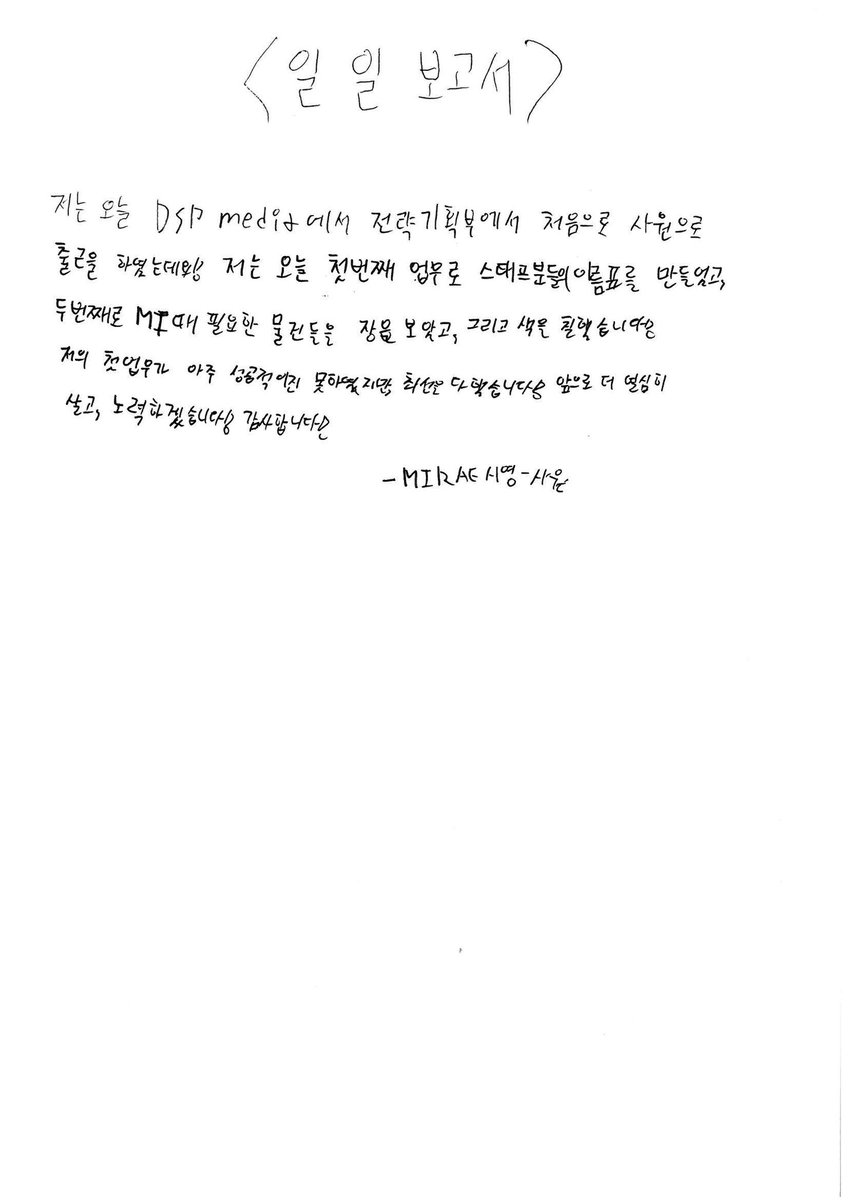 <일일 보고서>
저는 오늘 DSP media에서 전략기획부에서 처음으로 사원으로
출근을 하였는데요! 저는 오늘 첫번째 업무로 스태프분들의 이름표를 만들었고,
두번째로 MI때 필요한 물건들을 장을 보았고, 그리고 색을 칠했습니다!
저의 첫업무가 아주 성공적이진 못하였지만, 최선은 다했습니다! 앞으로 더 열심히
살고, 노력하겠습니다! 감사합니다!
-MIRAE 시영-사원